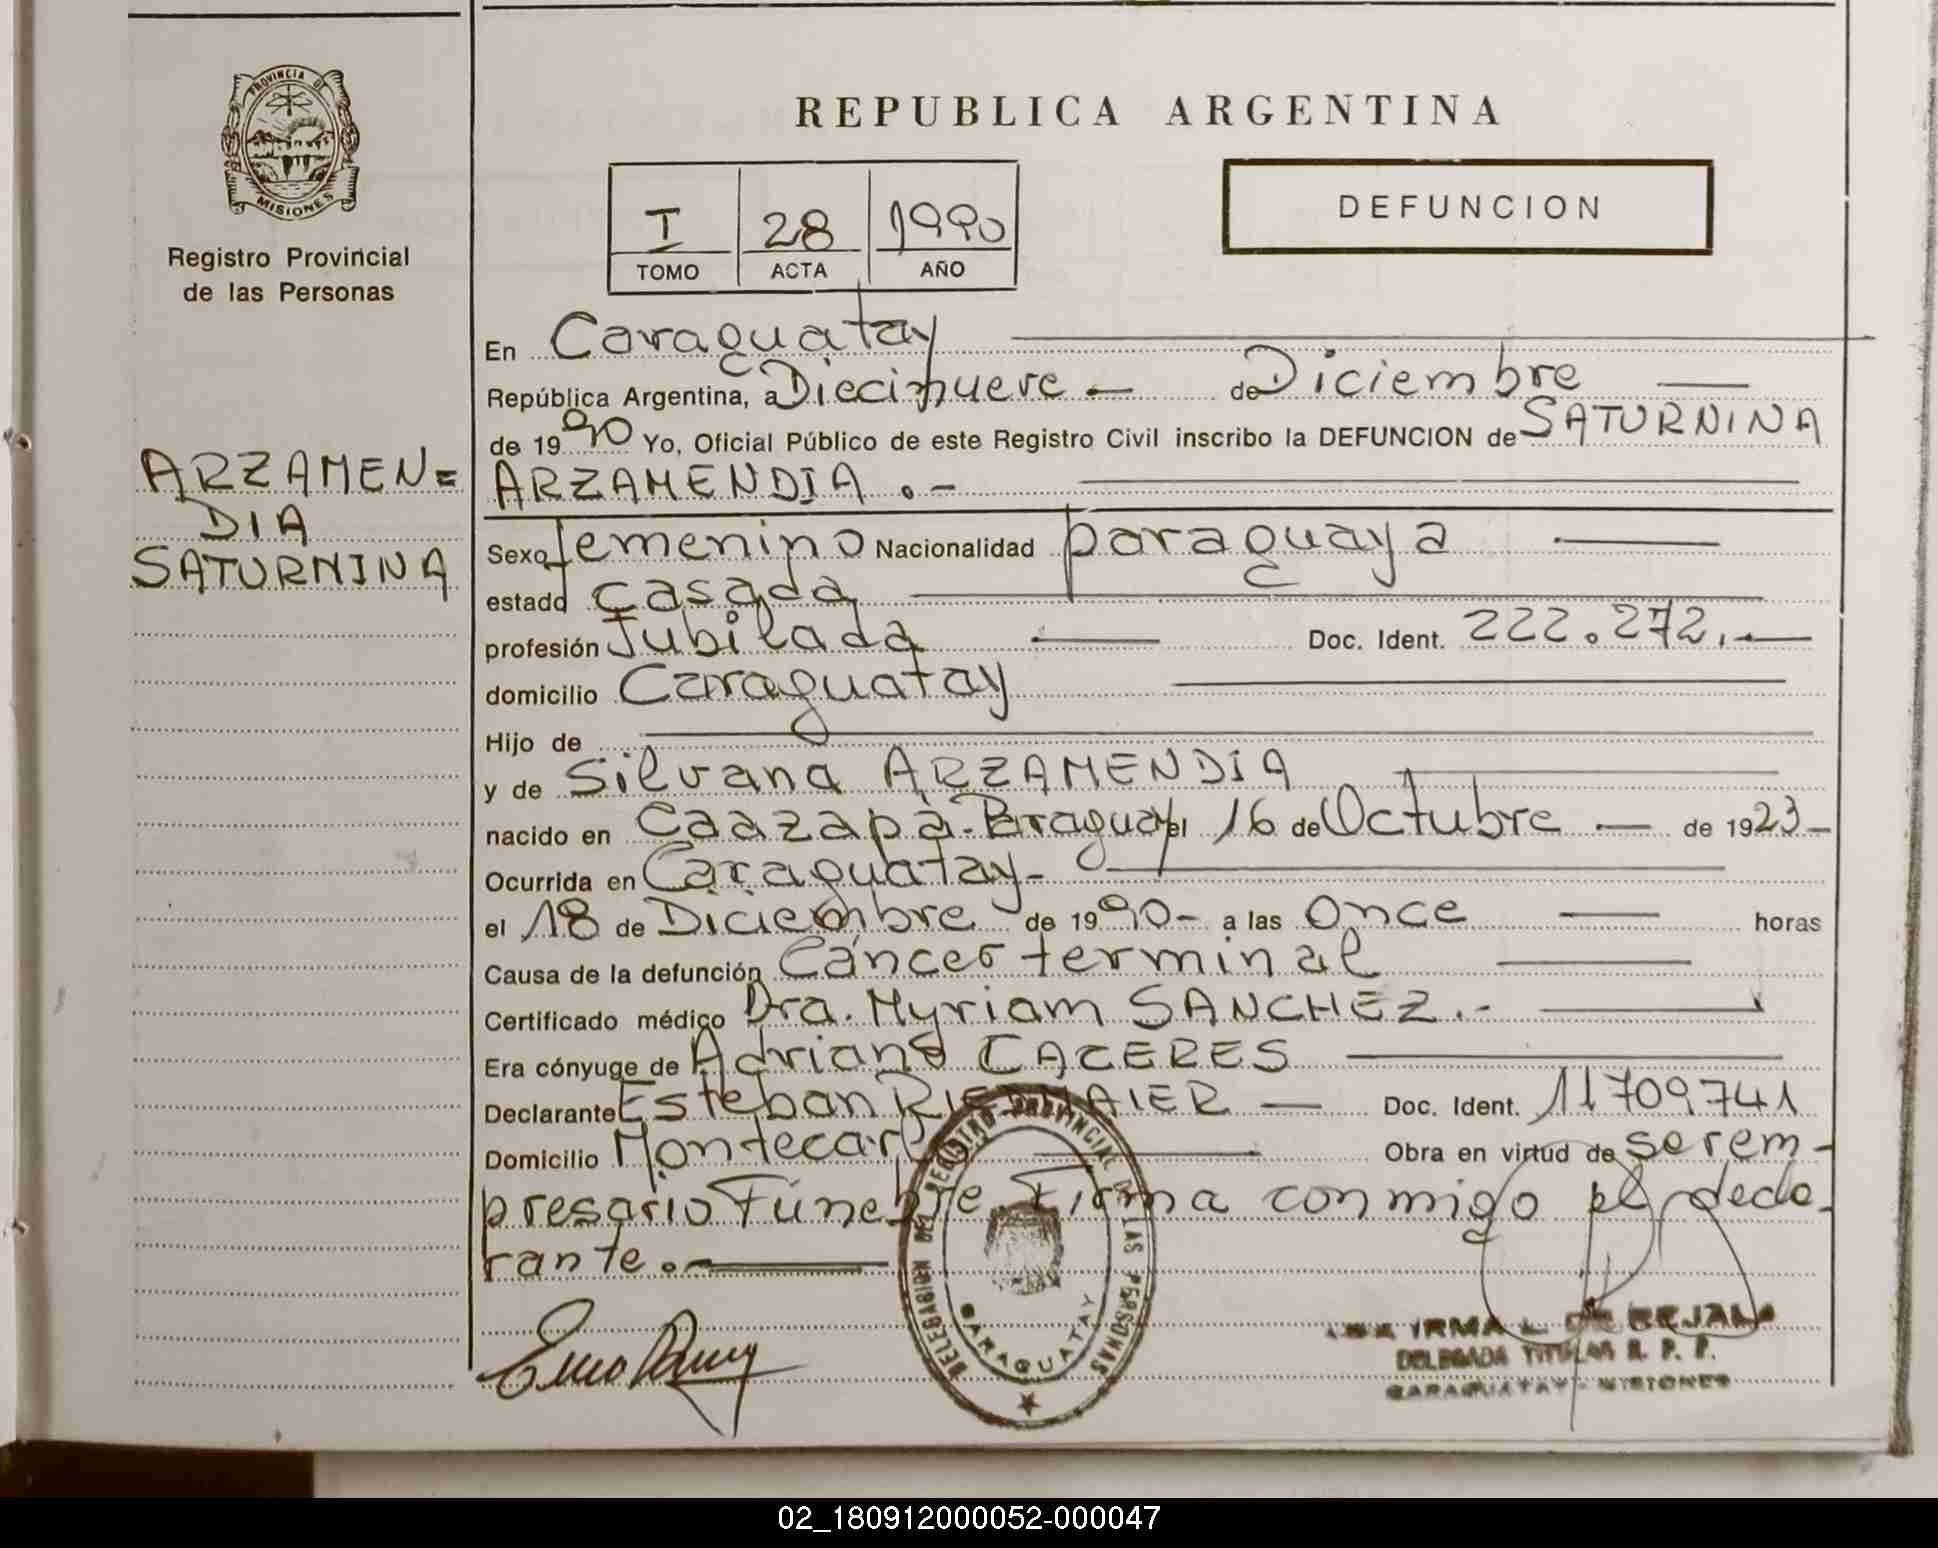 PROVINCIA DE
MISIONES
Registro Provincial
de las Personas
ARZAMEN=
DIA
SATURNINA
REPUBLICA ARGENTINA
I 28 1990
TOMO ACTA AÑO
DEFUNCION
En Caraguatay
República Argentina, a Diecinueve - de Diciembre
de 1990 Yo, Oficial Público de este Registro Civil inscribo la DEFUNCION de SATURNINA
ARZAMENDIA .-
Sexo femenino Nacionalidad paraguaya
estado casada
profesión Jubilada Doc. Ident. 222.272.-
domicilio Caraguatay
Hijo de
y de Silvana ARZAMENDIA
nacido en Caazapá-Paraguay el 16 de Octubre - de 1923-
Ocurrida en Caraguatay-
el 18 de Diciembre de 1990- a las Once horas
Causa de la defunción Cáncer terminal
Certificado médico Dra. Myriam SANCHEZ.-
Era cónyuge de Adriano CACERES
Declarante Esteban Doc. Ident. 11709741
Domicilio Montecarlo Obra en virtud de ser em-
presario Fúnebre. Firma conmigo el decla-
rante.-
DELEGACION DEL REGISTRO PROVINCIAL DE LAS PERSONAS
CARAGUATAY
IRMA L. DE BEJAL
DELEGADA TITULAR R. P. P.
CARAGUATAY - MISIONES
02_180912000052-000047